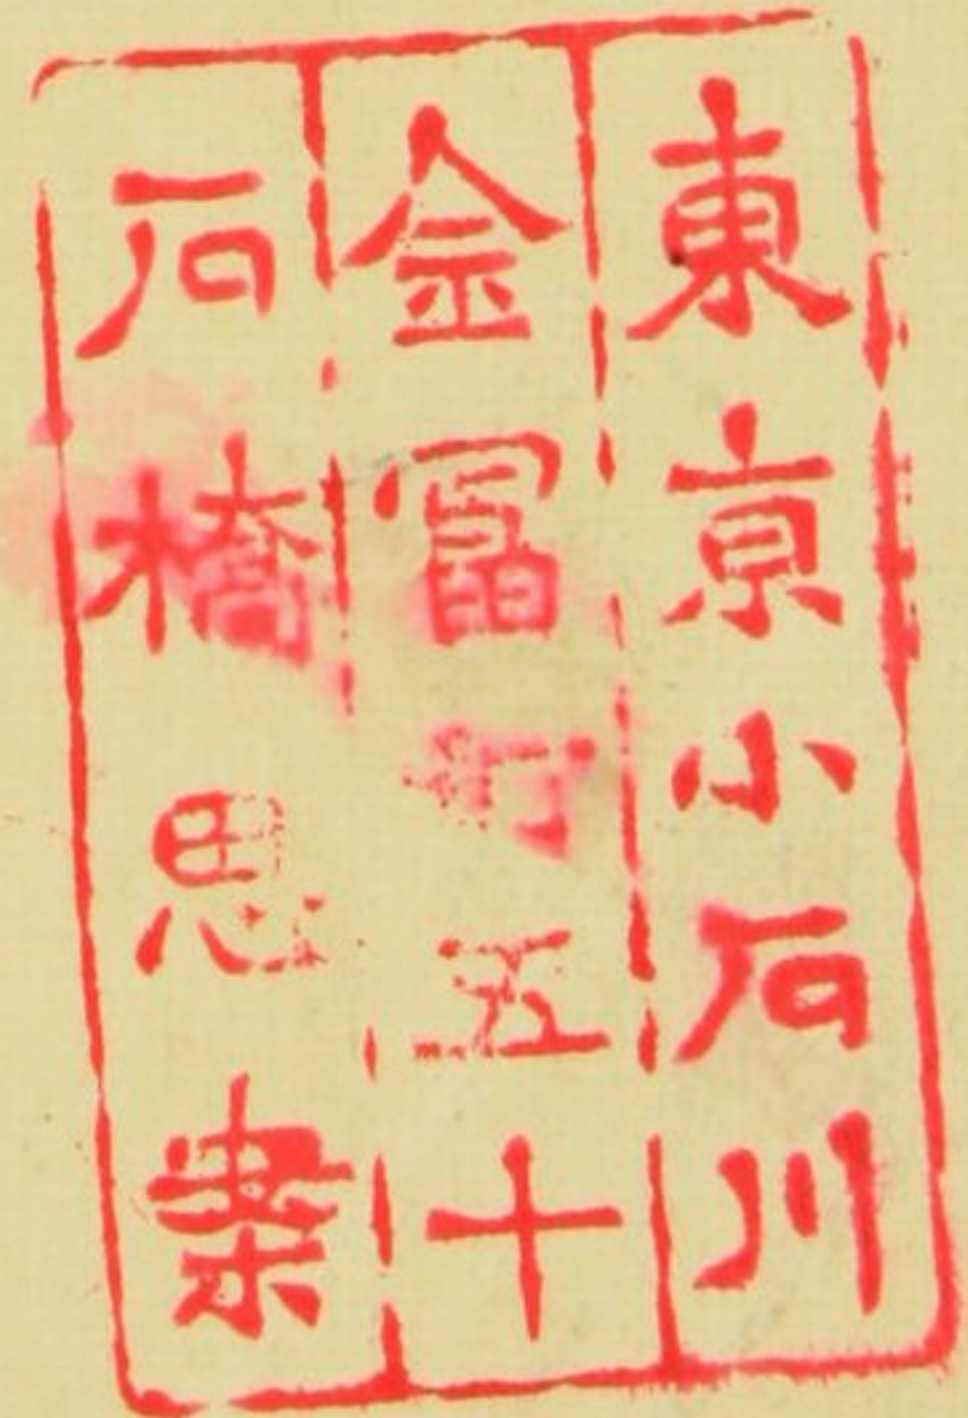 東京小石川
金冨町五十
石橋思案